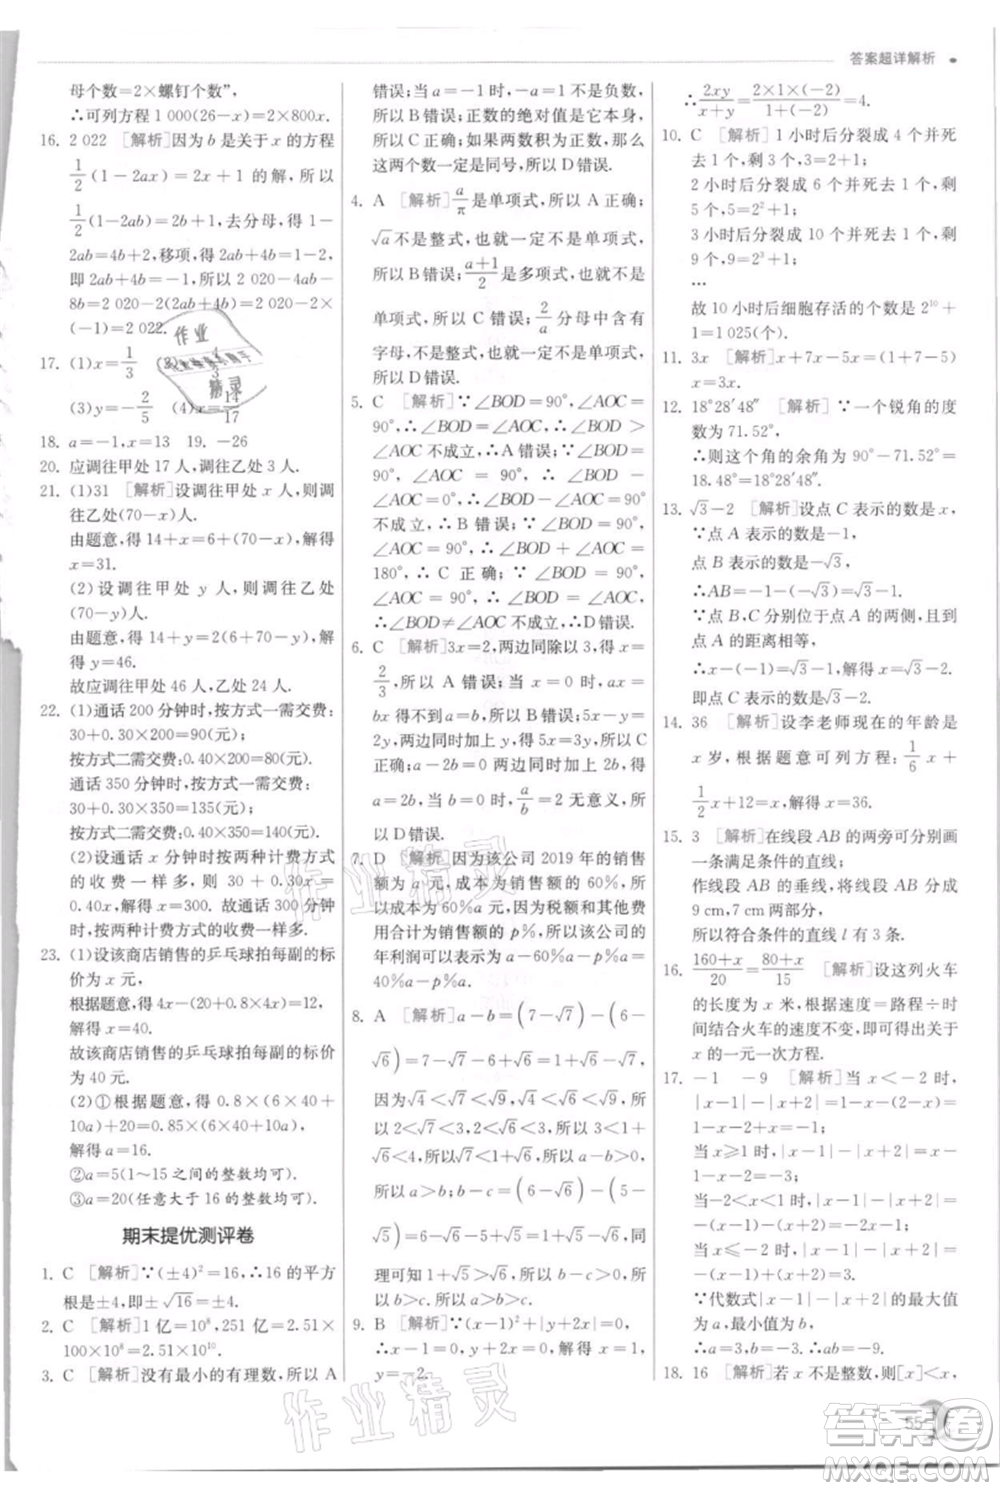 答案超详解析
母个数=2×螺钉个数”,
∴可列方程 1 000(26-x)=2×800x.
16. 2 022 [解析]因为 b 是关于 x 的方程
1/2(1-2ax)=2x+a 的解,所以
1/2(1-2ab)=2b+1,去分母,得 1-
2ab=4b+2,移项,得 2ab+4b=-1,
即 2ab+4b=-1,所以 2 020-4ab-
8b=2 020-2(2ab+4b)=2 020-2×
(-1)=2 022.
17. (1)x=1/3
(3)y=-2/5 (4)x=14/17
18. a=-1,x=13 19. -26
20. 应调往甲处 17 人,乙处 3 人.
21. (1)31 [解析]设调往甲处 x 人,则
调往乙处(70-x)人.
由题意,得 14+x=6+70-x,解得
x=31.
(2)设调往甲处 y 人,则调往乙处
(70-y)人.
由题意,得 14+y=2(6+70-y),解
得 y=46.
故应调往甲处 46 人,乙处 24 人.
22. (1)通话 200 分钟时,按方式一需交费:
30+0.30×200=90(元);
按方式二需交费:0.40×200=80(元);
通话 350 分钟时,按方式一需交费:
30+0.30×350=135(元);
按方式二需交费:0.40×350=140(元).
(2)设通话 x 分钟时按两种计费方式
的收费一样多,则 30+0.30x=
0.40x,解得 x=300. 故当通话 300 分
钟时,两种计费方式的收费一样多.
23. (1)设该商店销售的乒乓球拍每副的标
价为 x 元,
根据题意,得 4x-(20+0.8×4x)=12,
解得 x=40.
故该商店销售的乒乓球拍每副的标价
为 40 元.
(2)①根据题意,得 0.8×(6×40+
10a)+20=0.85×(6×40+10a),
解得 a=16.
②a=5(1~15 之间的整数均可).
③a=20(任意大于 16 的整数均可).
期末提优测评卷
1. C [解析]∵(±4)²=16,∴16 的平方
根是±4,即±√16=±4.
2. C [解析]1 亿=10⁸,251 亿=2.51×
100×10⁸=2.51×10¹⁰.
3. C [解析]没有最小的有理数,所以 A
错误;当 a=-1 时,-a=1 不是负数,
所以 B 错误;正数的绝对值是它本身,
所以 C 正确;如果两数积为正数,那么
这两个数一定是同号,所以 D 错误.
4. A [解析]a/π是单项式,所以 A 正确;
√a不是整式,也就一定不是单项式,
所以 B 错误;(a+1)/2是多项式,也就一定
不是单项式,所以 C 错误;2/a分母中含有
字母,不是整式,也就一定不是单项式,
所以 D 错误.
5. C [解析]∵∠BOD=90°,∠AOC=
90°,∴∠BOD=∠AOC,∴∠BOD>
∠AOC 不成立,∴A 错误;∵∠BOD=
90°,∠AOC=90°,∴∠BOD-
∠AOC=0°,∴∠BOD-∠AOC=90°
不成立,∴B 错误;∵∠BOD=90°,
∠AOC=90°,∴∠BOD+∠AOC=
180°,∴C 正确;∵∠BOD=90°,
∠AOC=90°,∴∠BOD=∠AOC,
∴∠BOD≠∠AOC不成立,∴D错误.
6. C [解析]3x=2,两边同除以 3,得 x=
2/3,所以 A 错误;当 x=0 时,ax=
bx 得不到 a=b,所以 B 错误;5x-y=
2y,两边同时加上 y,得 5x=3y,所以 C
正确;a-2b=0,两边同时加 2b,得
a=2b,当 b=0 时,a/b=2 无意义,所
以 D 错误.
7. D [解析]因为该公司 2019 年的销售
额为 a 元,成本为销售额的 60%,所
以成本为 60%a 元,因为税额和其他费
用合计为销售额的 p%,所以该公司的
年利润可以表示为 a-60%a-p%a=
40%a-p%a.
8. A [解析]a-b=(7-√7)-(6-
√6)=7-√7-6+√6=1+√6-√7,因
为√4<√6<√9,√4<√7<√9,所
以 2<√6<3,2<√7<3,所以 1+√6>
√7,所以 1+√6-√7>0,所以a-b>0,
所以 a>b;b-c=(6-√6)-(5-
√5)=6-√6-5+√5=1+√5-√6,同
理可知 1+√5>√6,所以 b-c>0,所
以b>c. 所以 a>b>c.
9. B [解析]∵(x-1)²+|y+2|=0,
∴x-1=0,y+2=0,∴x=1,
y=-2.
∴2xy/(x+y)=2×1×(-2)/(1+(-2))=4.
10. C [解析]1 小时后分裂成 4 个并死
去 1 个,剩 3 个,3=2+1;
2 小时后分裂成 6 个并死去 1 个,
剩 5 个,5=2²+1;
3 小时后分裂成 10 个并死去 1 个,
剩 9 个,9=2³+1;
…
故 10 小时后细胞存活的个数是 2¹⁰+
1=1 025(个).
11. 3x [解析]x+7x-5x=(1+7-5)·
x=3x.
12. 18°28′48″ [解析]∵一个锐角的度
数为 71.52°,
∴则这个角的余角为 90°-71.52°=
18.48°=18°28′48″.
13. √3-2 [解析]设点 C 表示的数是 x,
∵点 A 表示的数是-1,
点 B 表示的数是-√3,
∴AB=-1-(-√3)=√3-1.
∵点 B,C 分别位于点 A 的两侧,且与
点 A 的距离相等,
∴x-(-1)=√3-1,解得 x=√3-2.
即点 C 表示的数是√3-2.
14. 36 [解析]设李老师现在的年龄是
x 岁,根据题意可列方程:1/6x+
1/2x+12=x,解得 x=36.
15. 3 [解析]在线段 AB 的两旁可分别画
一条满足条件的直线;
作线段 AB 的垂线,将线段 AB 分成
9 cm,7 cm 两部分,
所以符合条件的直线 l 有 3 条.
16. (160+x)/20=(80+x)/15 [解析]设这列火车
的长度为 x 米,根据速度=路程÷时
间结合火车的速度不变,即可得出关于
x 的一元一次方程.
17. -1 -9 [解析]当 x<-2 时,
|x-1|-|x+2|=-(x-1)+
(x+2)=3;
当 x≥1 时,|x-1|-|x+2|=(x-
1)-(x+2)=-3;
当-2<x<1 时,|x-1|-|x+2|=
-(x-1)-(x+2)=-2x-1;
当 x=-2 时,|x-1|-|x+2|=
-(-2-1)-(-2+2)=3.
∵代数式|x-1|-|x+2|的最大值
为 a,最小值为 b,
∴a=3,b=-3.
18. 16 [解析]若 x 不是整数,则[x]<x,
55
答案圈
MXQE.COM
作业精灵
作业精灵
作业
精灵